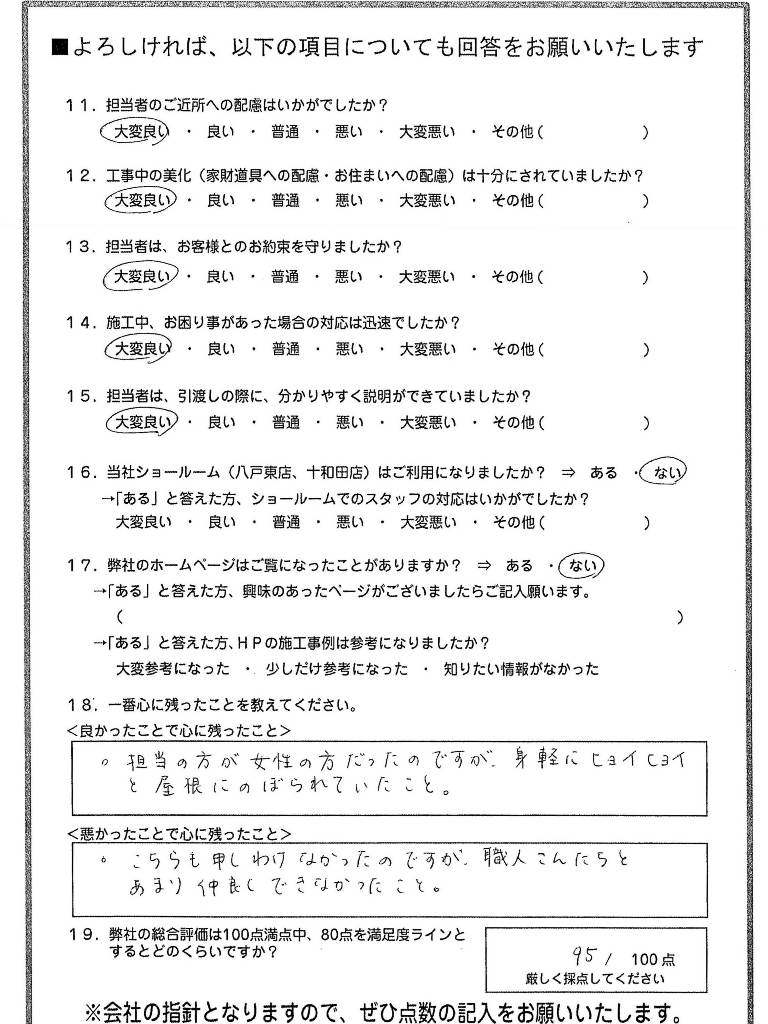 ■よろしければ、以下の項目についても回答をお願いいたします
11．担当者のご近所への配慮はいかがでしたか？
大変良い ・ 良い ・ 普通 ・ 悪い ・ 大変悪い ・ その他（ ）
12．工事中の美化（家財道具への配慮・お住まいへの配慮）は十分にされていましたか？
大変良い ・ 良い ・ 普通 ・ 悪い ・ 大変悪い ・ その他（ ）
13．担当者は、お客様とのお約束を守りましたか？
大変良い ・ 良い ・ 普通 ・ 悪い ・ 大変悪い ・ その他（ ）
14．施工中、お困り事があった場合の対応は迅速でしたか？
大変良い ・ 良い ・ 普通 ・ 悪い ・ 大変悪い ・ その他（ ）
15．担当者は、引渡しの際に、分かりやすく説明ができていましたか？
大変良い ・ 良い ・ 普通 ・ 悪い ・ 大変悪い ・ その他（ ）
16．当社ショールーム（八戸東店、十和田店）はご利用になりましたか？ ⇒ ある ・ ない
→「ある」と答えた方、ショールームでのスタッフの対応はいかがでしたか？
大変良い ・ 良い ・ 普通 ・ 悪い ・ 大変悪い ・ その他（ ）
17．弊社のホームページはご覧になったことがありますか？ ⇒ ある ・ ない
→「ある」と答えた方、興味のあったページがございましたらご記入願います。
（ ）
→「ある」と答えた方、HPの施工事例は参考になりましたか？
大変参考になった ・ 少しだけ参考になった ・ 知りたい情報がなかった
18．一番心に残ったことを教えてください。
＜良かったことで心に残ったこと＞
○ 担当の方が女性の方だったのですが、身軽にヒョイヒョイ
と屋根にのぼられていたこと。
＜悪かったことで心に残ったこと＞
○ こちらも申しわけなかったのですが、職人さんたちと
あまり仲良くできなかったこと。
19．弊社の総合評価は100点満点中、80点を満足度ラインと
するとどのくらいですか？
95/ 100点
厳しく採点してください
※会社の指針となりますので、ぜひ点数の記入をお願いいたします。